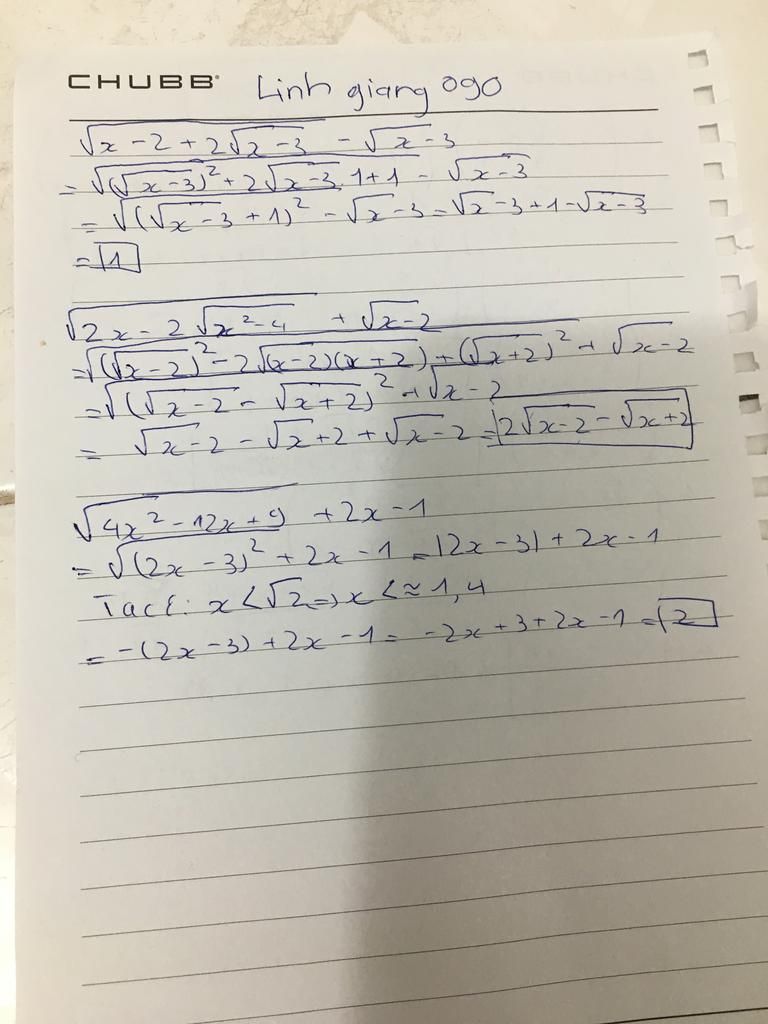 CHUBB® Linh giang 090
√(x-2+2√(x-3)) - √(x-3)
= √((√(x-3))²+2√(x-3).1+1) - √(x-3)
= √((√(x-3)+1)²) - √(x-3) = √(x-3)+1-√(x-3)
= 1
√(2x-2√(x²-4)) + √(x-2)
= √((√(x-2))²-2√((x-2)(x+2))+(√(x+2))²) + √(x-2)
= √((√(x-2)-√(x+2))²) + √(x-2)
= √(x-2) - √(x+2) + √(x-2) = 2√(x-2) - √(x+2)
√(4x²-12x+9) + 2x-1
= √((2x-3)²) + 2x-1 = |2x-3| + 2x-1
Ta có: x<√2 => x<≈1,4
= -(2x-3)+2x-1 = -2x+3+2x-1 = 2